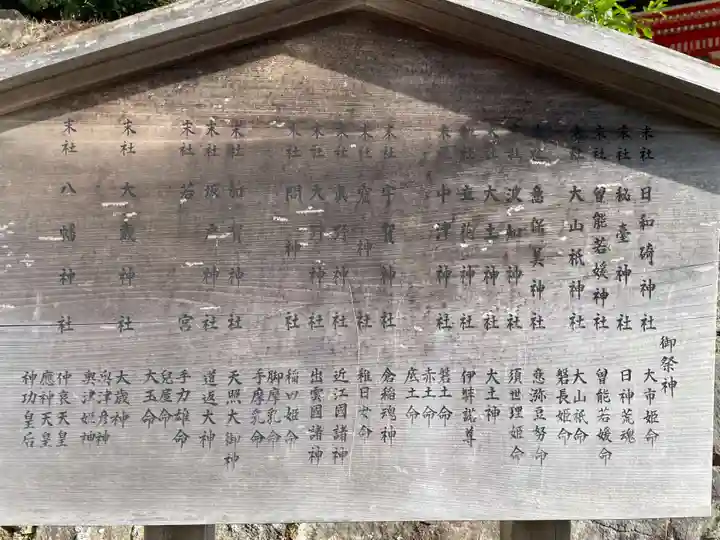 御祭神
末社 日和碕神社 大市姫命
末社 秘臺神社 日神荒魂
末社 曽能若媛神社 曽能若媛命
末社 大山祇神社 大山祇命
磐長姫命
意保美神社 意弥豆努命
波知神社 須世理姫命
大土神社 大土神
神社 伊弉諾尊
末社 中津神社 磐土命
赤土命
底土命
末社 宇賀神社 倉稲魂神
末社 窟神社 稚日女命
末社 神社 近江國諸神
末社 神社 出雲國諸神
末社 問神社 稲田姫命
脚摩乳命
手摩乳命
末社 加賀神社 天照大御神
末社 神社 道返大神
末社 若宮 手力雄命
兒屋命
太玉命
末社 大歳神社 大歳神
奥津彦神
奥津姫神
末社 八幡神社 仲哀天皇
應神天皇
神功皇后